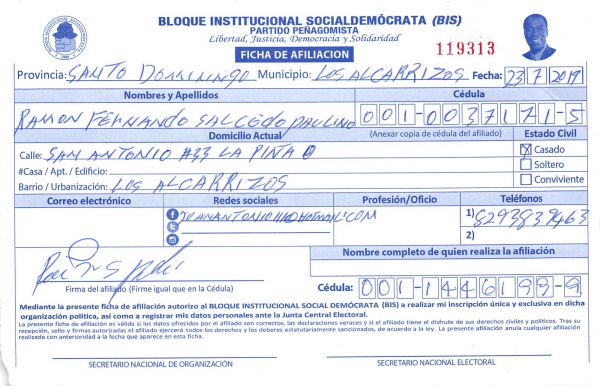 BLOQUE INSTITUCIONAL SOCIALDEMÓCRATA (BIS)
PARTIDO PEÑAGOMISTA
Libertad, Justicia, Democracia y Solidaridad
FICHA DE AFILIACION
119313
Provincia: SANTO DOMINNGO Municipio: LOS ALCARRIZOS Fecha: 23/7/2019
Nombres y Apellidos Cédula
RAMON FERNANDO SALCEDO PAULINO 001-0037171-5
Domicilio Actual (Anexar copia de cédula del afiliado) Estado Civil
Calle: SAN ANTONIO #33 LA PIÑTA Casado
#Casa / Apt. / Edificio: Soltero
Barrio / Urbanización: LOS ALCARRIZOS Conviviente
Correo electrónico Redes sociales Profesión/Oficio Teléfonos
JUANANTONIO111@HOTMAIL'COM 1) 8293839463
2)
Nombre completo de quien realiza la afiliación
Firma del afiliado (Firme igual que en la Cédula) Cédula: 001-1446199-9
Mediante la presente ficha de afiliación autorizo al BLOQUE INSTITUCIONAL SOCIAL DEMÓCRATA (BIS) a realizar mi inscripción única y exclusiva en dicha
organización política, así como a registrar mis datos personales ante la Junta Central Electoral.
La presente ficha de afiliación es válida si los datos ofrecidos por el afiliado son correctos, las declaraciones veraces y si el afiliado tiene el disfrute de sus derechos civiles y políticos. Tras su
recepción, sello y firmas autorizadas el afiliado ejercerá todos los derechos y los deberes estatutariamente sancionados, de acuerdo a la ley. La presente afiliación anula cualquier afiliación
realizada con anterioridad a la fecha que aparece en esta ficha.
SECRETARIO NACIONAL DE ORGANIZACIÓN SECRETARIO NACIONAL ELECTORAL